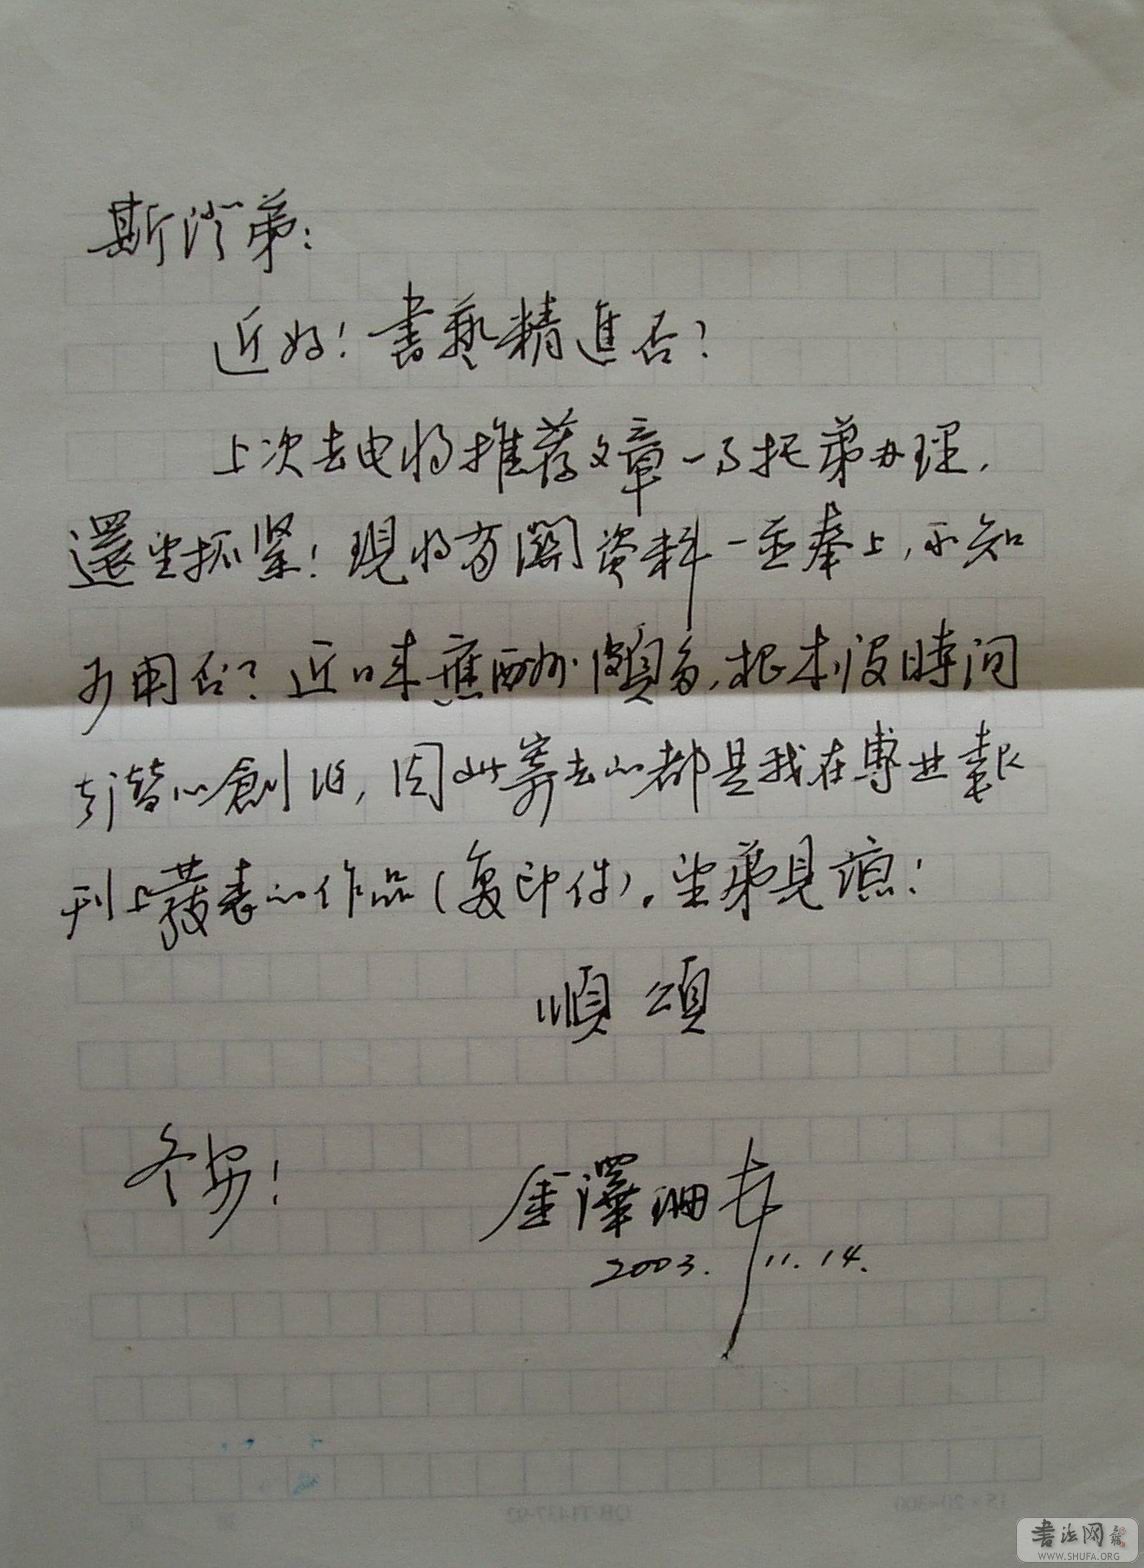 斯澄弟：
近好！書藝精進否？
上次去电将推荐文章一事托弟办理，
還望抓緊！現将有關资料一並奉上，不知
可用否？近日来應酬頗多，根本没時间
潜心創作，因此寄去的都是我在專业報
刊上發表的作品（复印件）。望弟見諒！
順頌
冬安！
金澤珊
2003.11.14.
書法网
WWW.SHUFA.ORG